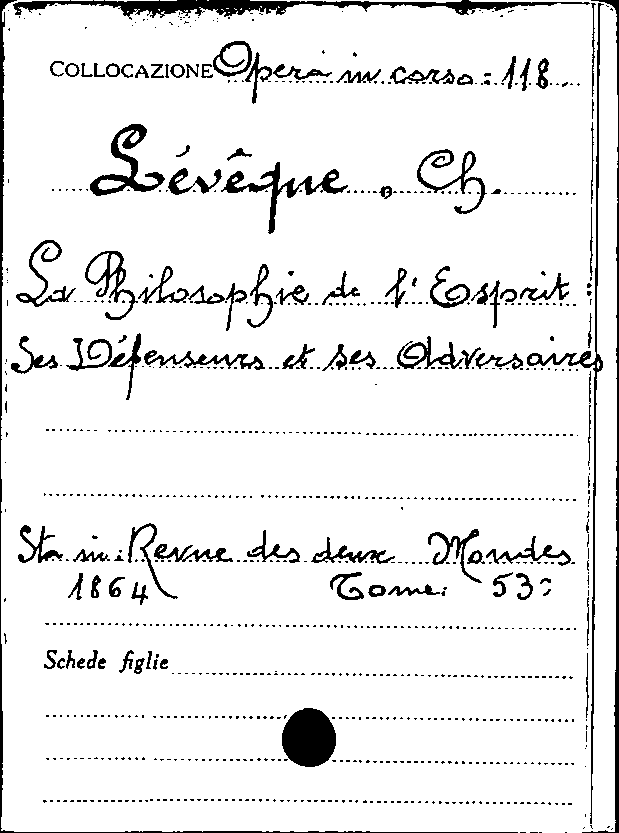 COLLOCAZIONE Opera in corso: 118.
Lévêque. Ch.
La Philosophie de l'Esprit:
Ses Défenseurs et ses Adversaires
Sta in: Revue des deux Mondes
1864 Tome: 53º
Schede figlie